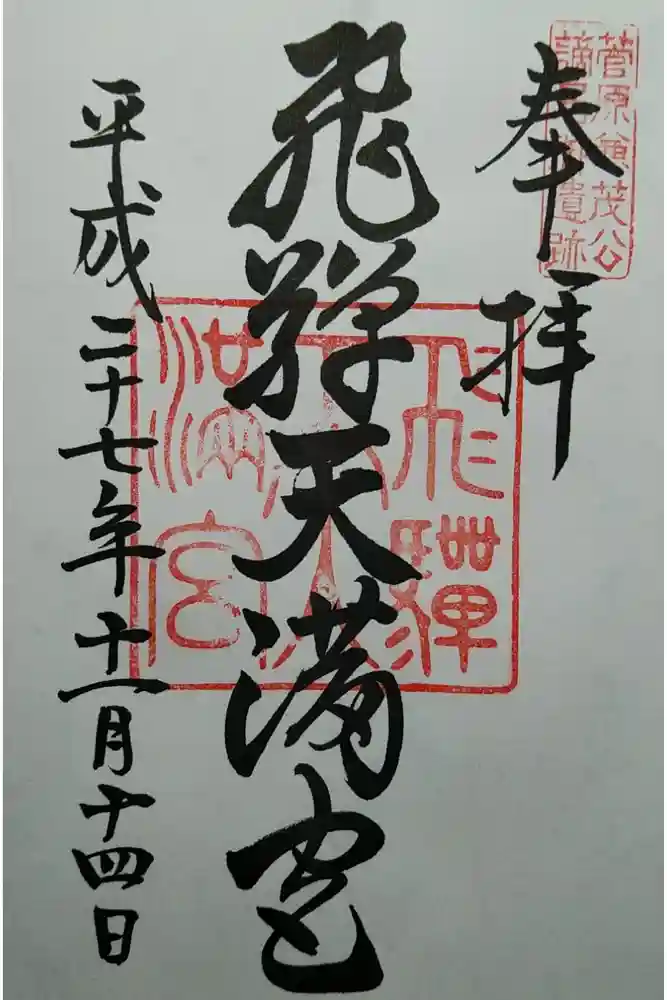 菅原兼茂公
謫居御遺跡
奉拝
飛騨天満宮
飛騨天満宮
平成二十七年十一月十四日